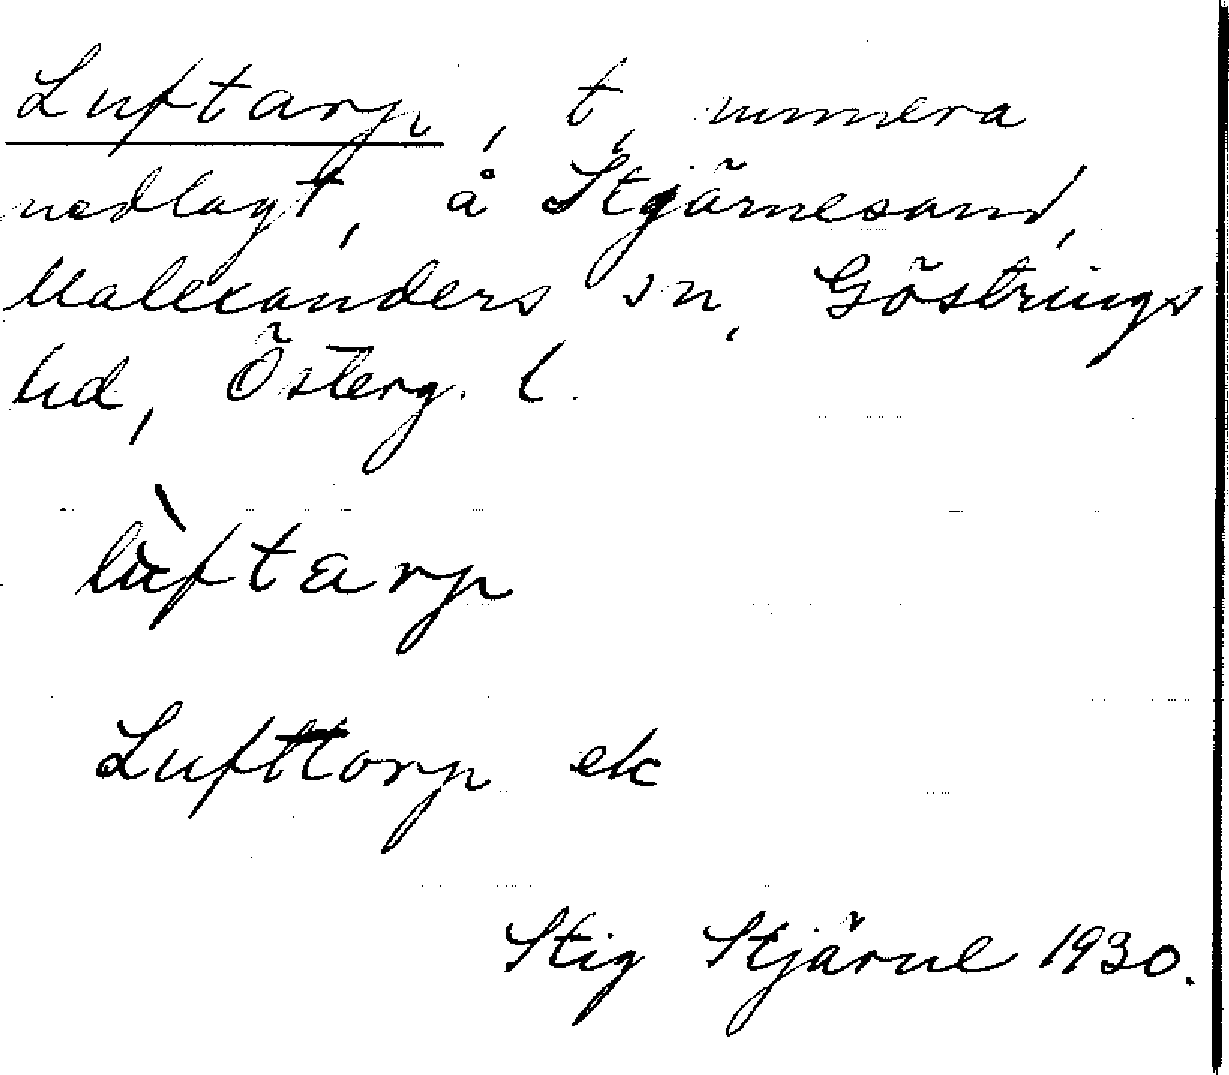 Luftarp, t, numera
nedlagt, å Stjärnesand,
Malexanders sn, Göstrings
hd, Österg. l.
lùftarp
Lufttorp ek
Stig Stjärne 1930.